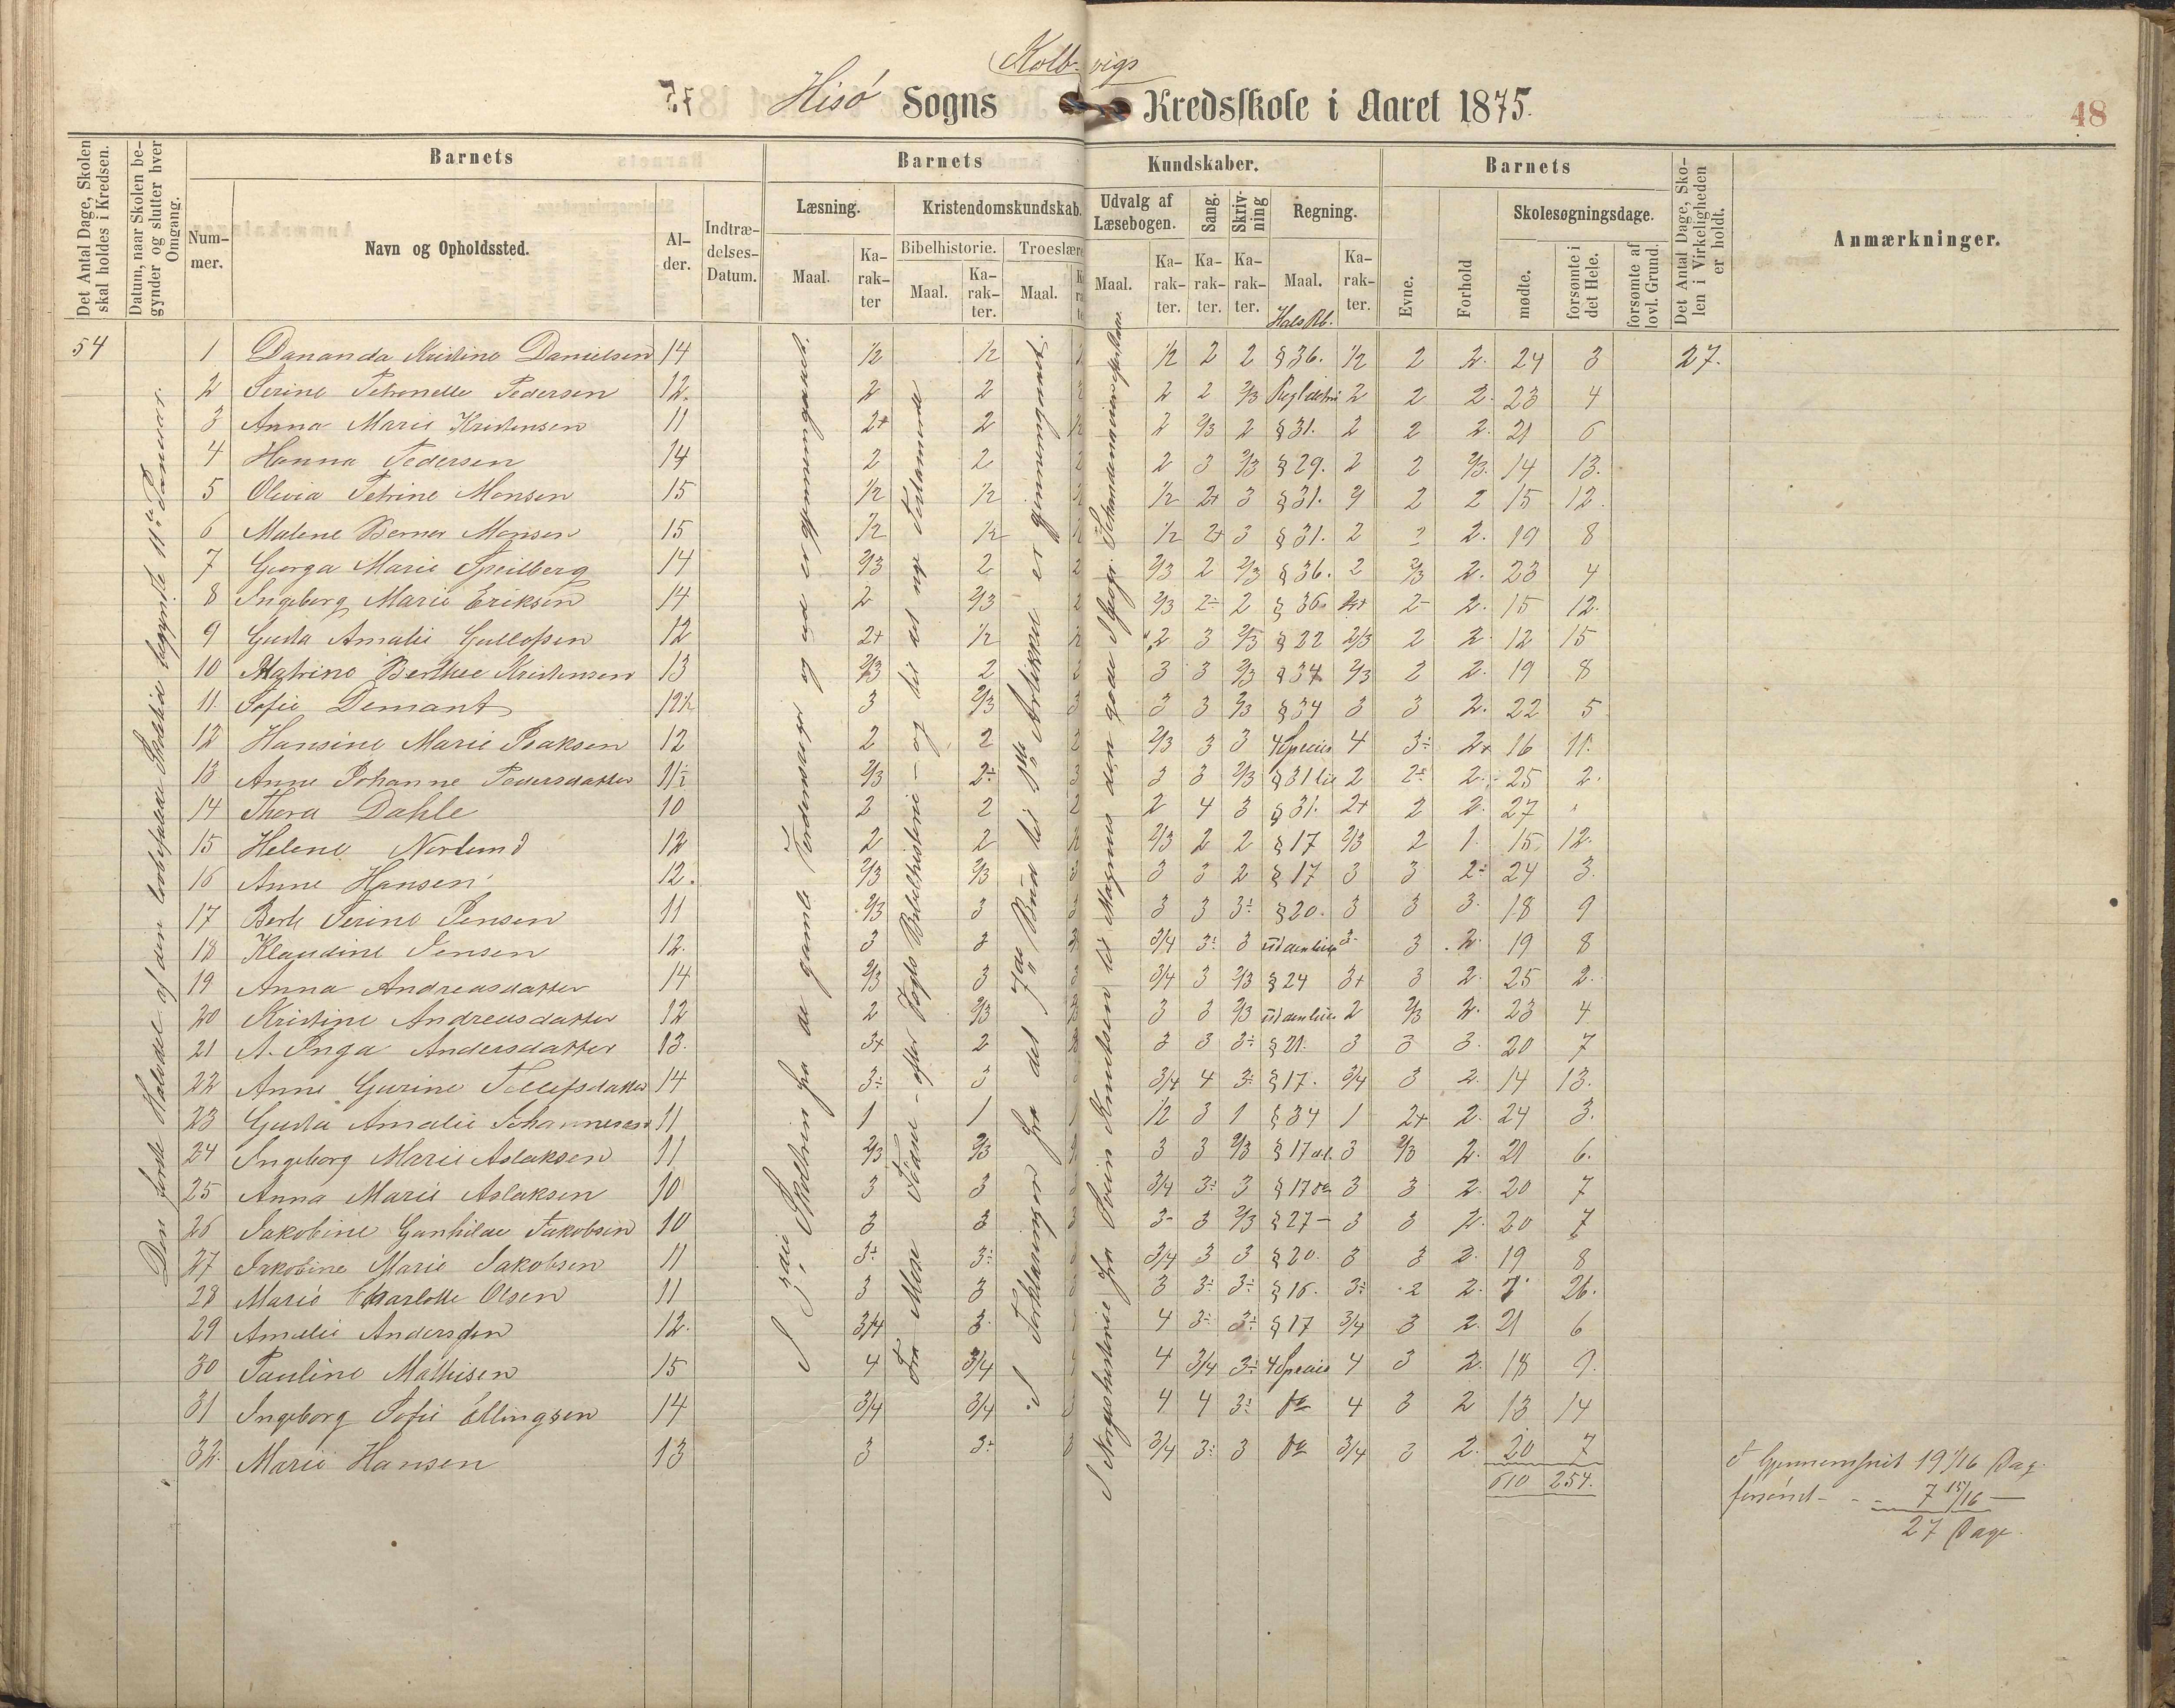 Kolbvigs
Hisö Sogns Kredsskole i Aaret 1875.
48
Det Antal Dage, Skolen skal holdes i Kredsen.
Datum, naar Skolen begynder og slutter hver Omgang.
Barnets
Nummer.
Navn og Opholdssted.
Alder.
Indtrædelses-Datum.
Barnets Kundskaber.
Læsning.
Maal.
Karakter
Kristendomskundskab.
Bibelhistorie.
Maal.
Karakter.
Troeslære
Maal.
Udvalg af Læsebogen.
Maal.
Karakter.
Sang.
Karakter.
Skrivning
Karakter.
Regning.
Maal.
Karakter.
Barnets
Evne.
Forhold
Skolesøgningsdage.
mødte.
forsømte i det Hele.
forsømte af lovl. Grund.
Det Antal Dage, Skolen i Virkeligheden er holdt.
Anmærkninger.
54
1 Dananda Kristine Danielsen 14 1/2 1/2 1/2 2 2 § 36. 1/2 2 2. 24 3 27.
2 Serine Petronelle Pedersen 12. 2 2 2 2 2/3 2 2 2. 23 4
3 Anna Marie Kristensen 11 2+ 2 2 2/3 2 § 31. 2 2 2. 21 6
4 Hanna Pedersen 14 2 2 2 3 2/3 § 29. 2 2 2/3. 14 13.
5 Olivia Petrine Monsen 15 1/2 1/2 1/2 2+ 3 § 31. 2 2 2 15 12.
6 Malene Berner Monsen 15 1/2 1/2 1/2 2+ 3 § 31. 2 2 2. 19 8
7 Georga Marie Speilberg 14 2/3 2 2/3 2 2/3 § 36. 2 2/3 2. 23 4
8 Ingeborg Marie Eriksen 14 2 2/3 2/3 2÷ 2 § 36. 2+ 2- 2. 15 12.
9 Gusta Amalie Gullofsen 12 2+ 1/2 2 3 2/3 § 22 2/3 2 2. 12 15
10 Katrine Berthee Kristensen 13 2/3 2 3 3 2/3 § 34 2/3 2 2. 19 8
11. Sofie Demant 12 1/2 3 2/3 3 3 2/3 § 34 3 3 2. 22 5
12 Hansine Marie Isaksen 12 2 2 2/3 3 3 4 Species 4 3÷ 2+ 16 11.
13 Anne Johanne Pedersdatter 11 1/2 2/3 2÷ 3 3 2/3 § 31 2 2÷ 2. 25 2.
14 Thora Dahle 10 2 2 2 4 3 § 31. 2+ 2 2. 27
15 Helene Norlund 12 2 2 2/3 2 2 § 17 2/3 2 1. 15 12.
16 Anne Hansen 12. 2/3 2/3 3 3 2 § 17 3 3 2÷ 24 3.
17 Berte Serine Jensen 11 2/3 3 3 3 3÷ § 20. 3 3 3. 18 9
18 Klaudine Jensen 12. 3 3 3/4 3÷ 3 3- 3 2. 19 8
19 Anna Andreasdatter 14 2/3 3 3/4 3 2/3 § 24 3+ 3 2. 25 2.
20 Kristine Andreasdatter 12 2 2/3 3 3 2/3 2 2/3 2. 23 4
21 A. Inga Andersdatter 13. 3+ 2 3 3 3÷ § 21. 3 3 3. 20 7
22 Anne Gurine Tellefsdatter 14 3÷ 3 3/4 4 3÷ § 17. 3/4 3 2. 14 13.
23 Gusta Amalie Johannesen 11 1 1 1/2 3 1 § 34 1 2+ 2. 24 3.
24 Ingeborg Marie Aslaksen 11 2/3 2/3 3 3 2/3 § 17 3 2/3 2. 21 6.
25 Anna Marie Aslaksen 10 3 3 3/4 3÷ 3 § 17 3 3 2. 20 7
26 Jakobine Gunhilde Jakobsen 10 3 3 3- 3 2/3 § 27 – 3 3 2. 20 7
27 Jakobine Marie Jakobsen 11 3÷ 3÷ 3/4 3 3 § 20. 3 3 2. 19 8
28 Marie Charlotte Olsen 11 3 3 3 3÷ 3÷ § 16. 3÷ 2 2. 1 26.
29 Amelie Andersen 12. 3/4 3 4 3÷ 3÷ § 17 3/4 3 2. 21 6
30 Pauline Mathisen 15 4 3/4 4 3/4 3÷ 4 Species 4 3 2. 18 9.
31 Ingeborg Sofie Ellingsen 14 3/4 3/4 4 4 3÷ do 4 3 2 13 14
32. Marie Hansen 13 3 3÷ 3/4 3÷ 3 do 3/4 3 2. 20 7
610 254.
Gjennemsnit 19 1/16 Dag.
forsømt - - - 7 15/16 —
27 Dage.
Den første Halvdel af den lovbefalede Skoletid begyndte 11te Januar.